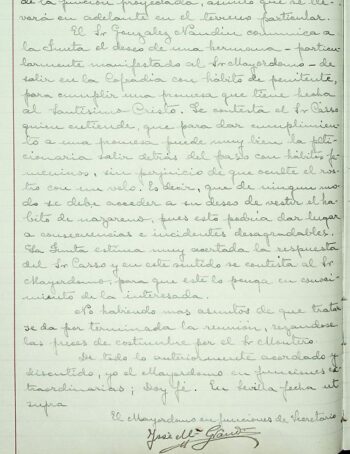 de la función proyectada, asunto que se lle-
vará en adelante en el terreno particular.
El Sr Gonzalez Nandin comunica a
la Junta el deseo de una hermana - particu-
larmente manifestado al Sr Mayordomo - de
salir en la Cofradia con hábito de penitente,
para cumplir una promesa que tiene hecha
al Santísimo Cristo. Le contesta el Sr Casso
quien entiende, que para dar cumplimien-
to a una promesa puede muy bien la peti-
cionaria salir detrás del paso con hábitos fe-
meninos, sin perjuicio de que oculte el ros-
tro con un velo. Es decir, que de ningun mo-
do se debe acceder a su deseo de vestir el há-
bito de nazareno, pues esto podria dar lugar
a consecuencias e incidentes desagradables.
La Junta estima muy acertada la respuesta
del Sr Casso y en este sentido se contesta al Sr
Mayordomo, para que este lo ponga en conoci-
miento de la interesada.
No habiendo mas asuntos de que tratar
se da por terminada la reunión, rezandose
las preces de costumbre por el Sr Montero.
De todo lo anteriormente acordado y
discutido, yo el Mayordomo en funciones ex-
traordinarias; Doy fé. En Sevilla fecha ut
supra
El Mayordomo en funciones de Secretario
José Mª